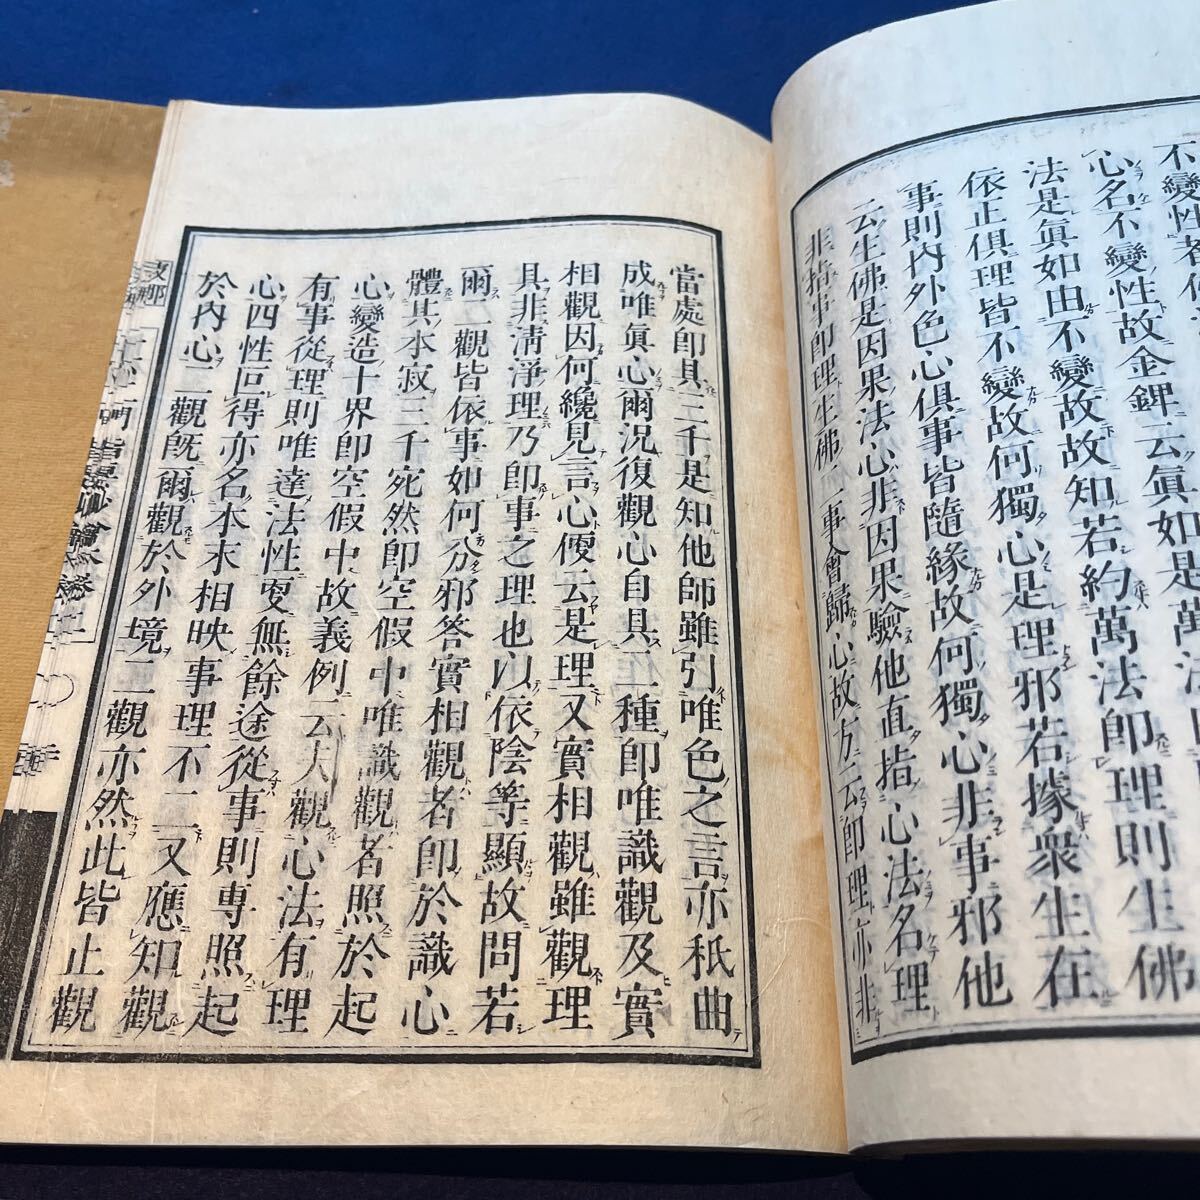 不變性
心名不變性故金錍云眞如是萬
法是眞如由不變故故知若約萬法即理則生佛
依正俱理皆不變故何獨心是理邪若據衆生在
事則內外色心俱事皆隨緣故何獨心非事邪他
云生佛是因果法心非因果驗他直指心法名理
非指事即理生佛二事會歸心故方云即理亦非
當處即具三千是知他師雖引唯色之言亦秖曲
成唯眞心爾況復觀心自具二種即唯識觀及實
相觀因何纔見言心便云是理又實相觀雖觀理
具非淸淨理乃即事之理也以依陰等顯故問若
爾二觀皆依事如何分邪答實相觀者即於識心
體其本寂三千宛然即空假中唯識觀者照於起
心變造十界即空假中故義例云夫觀心法有理
有事從理則唯達法性更無餘途從事則專照起
心四性叵得亦名本末相映事理不二又應知觀
於內心二觀旣爾觀於外境二觀亦然此皆止觀